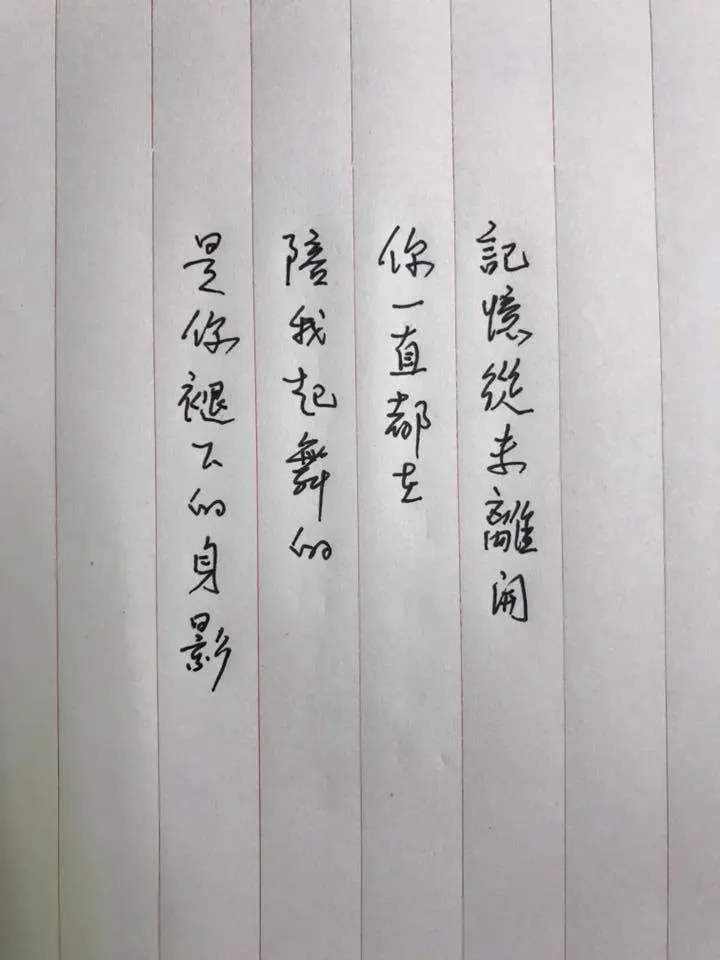 記憶從未離開
你一直都在
陪我起舞的
是你褪下的身影